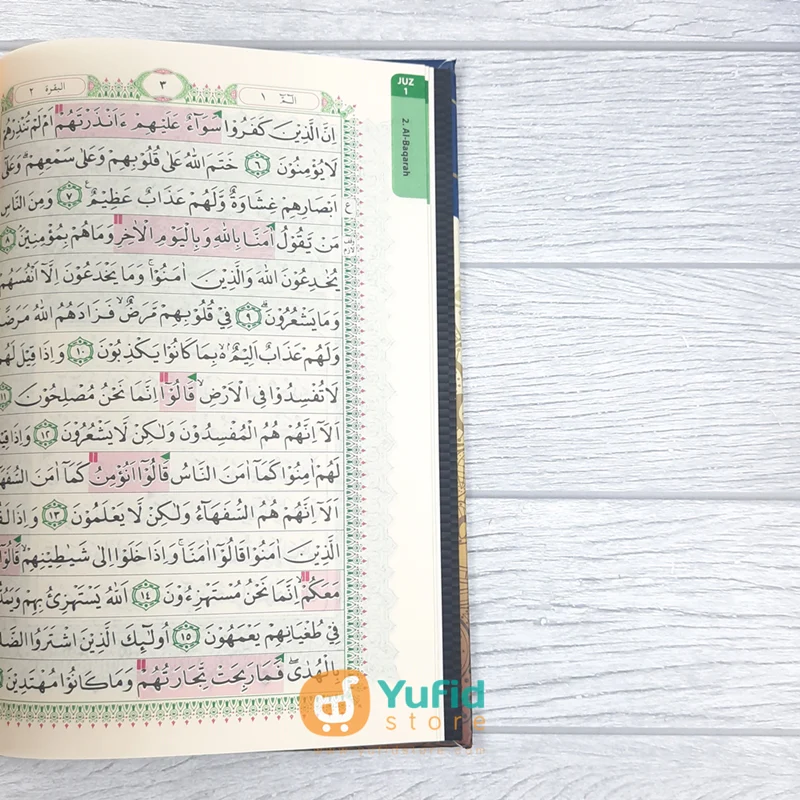 البقرة ٢
٣
الۤمّۤ ١
JUZ
1
2. Al-Baqarah
اِنَّ الَّذِيْنَ كَفَرُوْا سَوَاۤءٌ عَلَيْهِمْ ءَاَنْذَرْتَهُمْ اَمْ لَمْ تُنْذِرْهُمْ
لَا يُؤْمِنُوْنَ ٦ خَتَمَ اللّٰهُ عَلٰى قُلُوْبِهِمْ وَعَلٰى سَمْعِهِمْ ۗ وَعَلٰٓى
اَبْصَارِهِمْ غِشَاوَةٌ وَّلَهُمْ عَذَابٌ عَظِيْمٌ ٧ وَمِنَ النَّاسِ
مَنْ يَّقُوْلُ اٰمَنَّا بِاللّٰهِ وَبِالْيَوْمِ الْاٰخِرِ وَمَا هُمْ بِمُؤْمِنِيْنَ ۘ ٨
يُخٰدِعُوْنَ اللّٰهَ وَالَّذِيْنَ اٰمَنُوْا ۚ وَمَا يَخْدَعُوْنَ اِلَّآ اَنْفُسَهُمْ
وَمَا يَشْعُرُوْنَ ۗ ٩ فِيْ قُلُوْبِهِمْ مَّرَضٌۙ فَزَادَهُمُ اللّٰهُ مَرَضًا
وَلَهُمْ عَذَابٌ اَلِيْمٌ ۢ ەۙ بِمَا كَانُوْا يَكْذِبُوْنَ ١٠ وَاِذَا قِيْلَ لَهُمْ
لَا تُفْسِدُوْا فِى الْاَرْضِۙ قَالُوْٓا اِنَّمَا نَحْنُ مُصْلِحُوْنَ ١١
اَلَآ اِنَّهُمْ هُمُ الْمُفْسِدُوْنَ وَلٰكِنْ لَّا يَشْعُرُوْنَ ١٢ وَاِذَا
لَهُمْ اٰمِنُوْا كَمَآ اٰمَنَ النَّاسُ قَالُوْٓا اَنُؤْمِنُ كَمَآ اٰمَنَ
اَلَآ اِنَّهُمْ هُمُ السُّفَهَاۤءُ وَلٰكِنْ لَّا يَعْلَمُوْنَ ١٣ وَاِذَا
الَّذِيْنَ اٰمَنُوْا قَالُوْٓا اٰمَنَّا ۚ وَاِذَا خَلَوْا اِلٰى شَيٰطِيْنِهِمْ ۙ قَالُوْٓا
مَعَكُمْ ۙ اِنَّمَا نَحْنُ مُسْتَهْزِءُوْنَ ١٤ اَللّٰهُ يَسْتَهْزِئُ بِهِمْ
فِيْ طُغْيَانِهِمْ يَعْمَهُوْنَ ١٥ اُولٰۤىِٕكَ الَّذِيْنَ اشْتَرَوُا
بِالْهُدٰىۖ فَمَا رَبِحَتْ تِّجَارَتُهُمْ وَمَا كَانُوْا مُهْتَدِيْنَ
Yufid
store